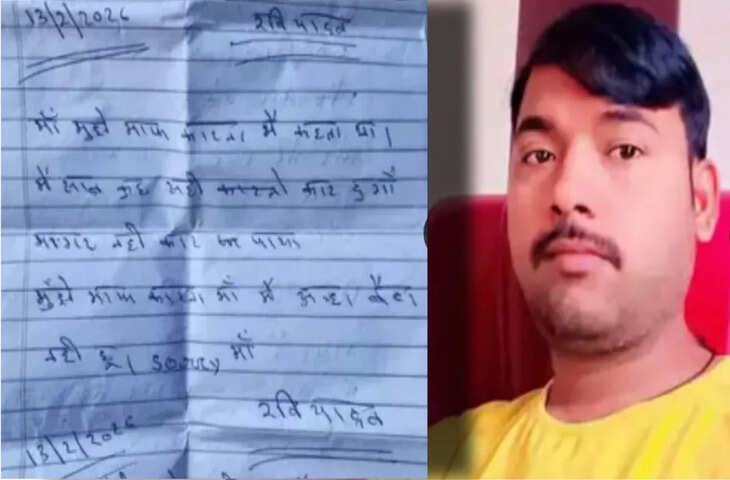 13/2/2026 रवि यादव
माँ मुझे माफ करना मैं कहता था।
मैं सब कुछ सही कर दुगाँ
मगर नही कर पाया
मुझे माफ करना माँ मैं अच्छा बेटा
नही हू। sorry माँ
रवि यादव
13/2/2026